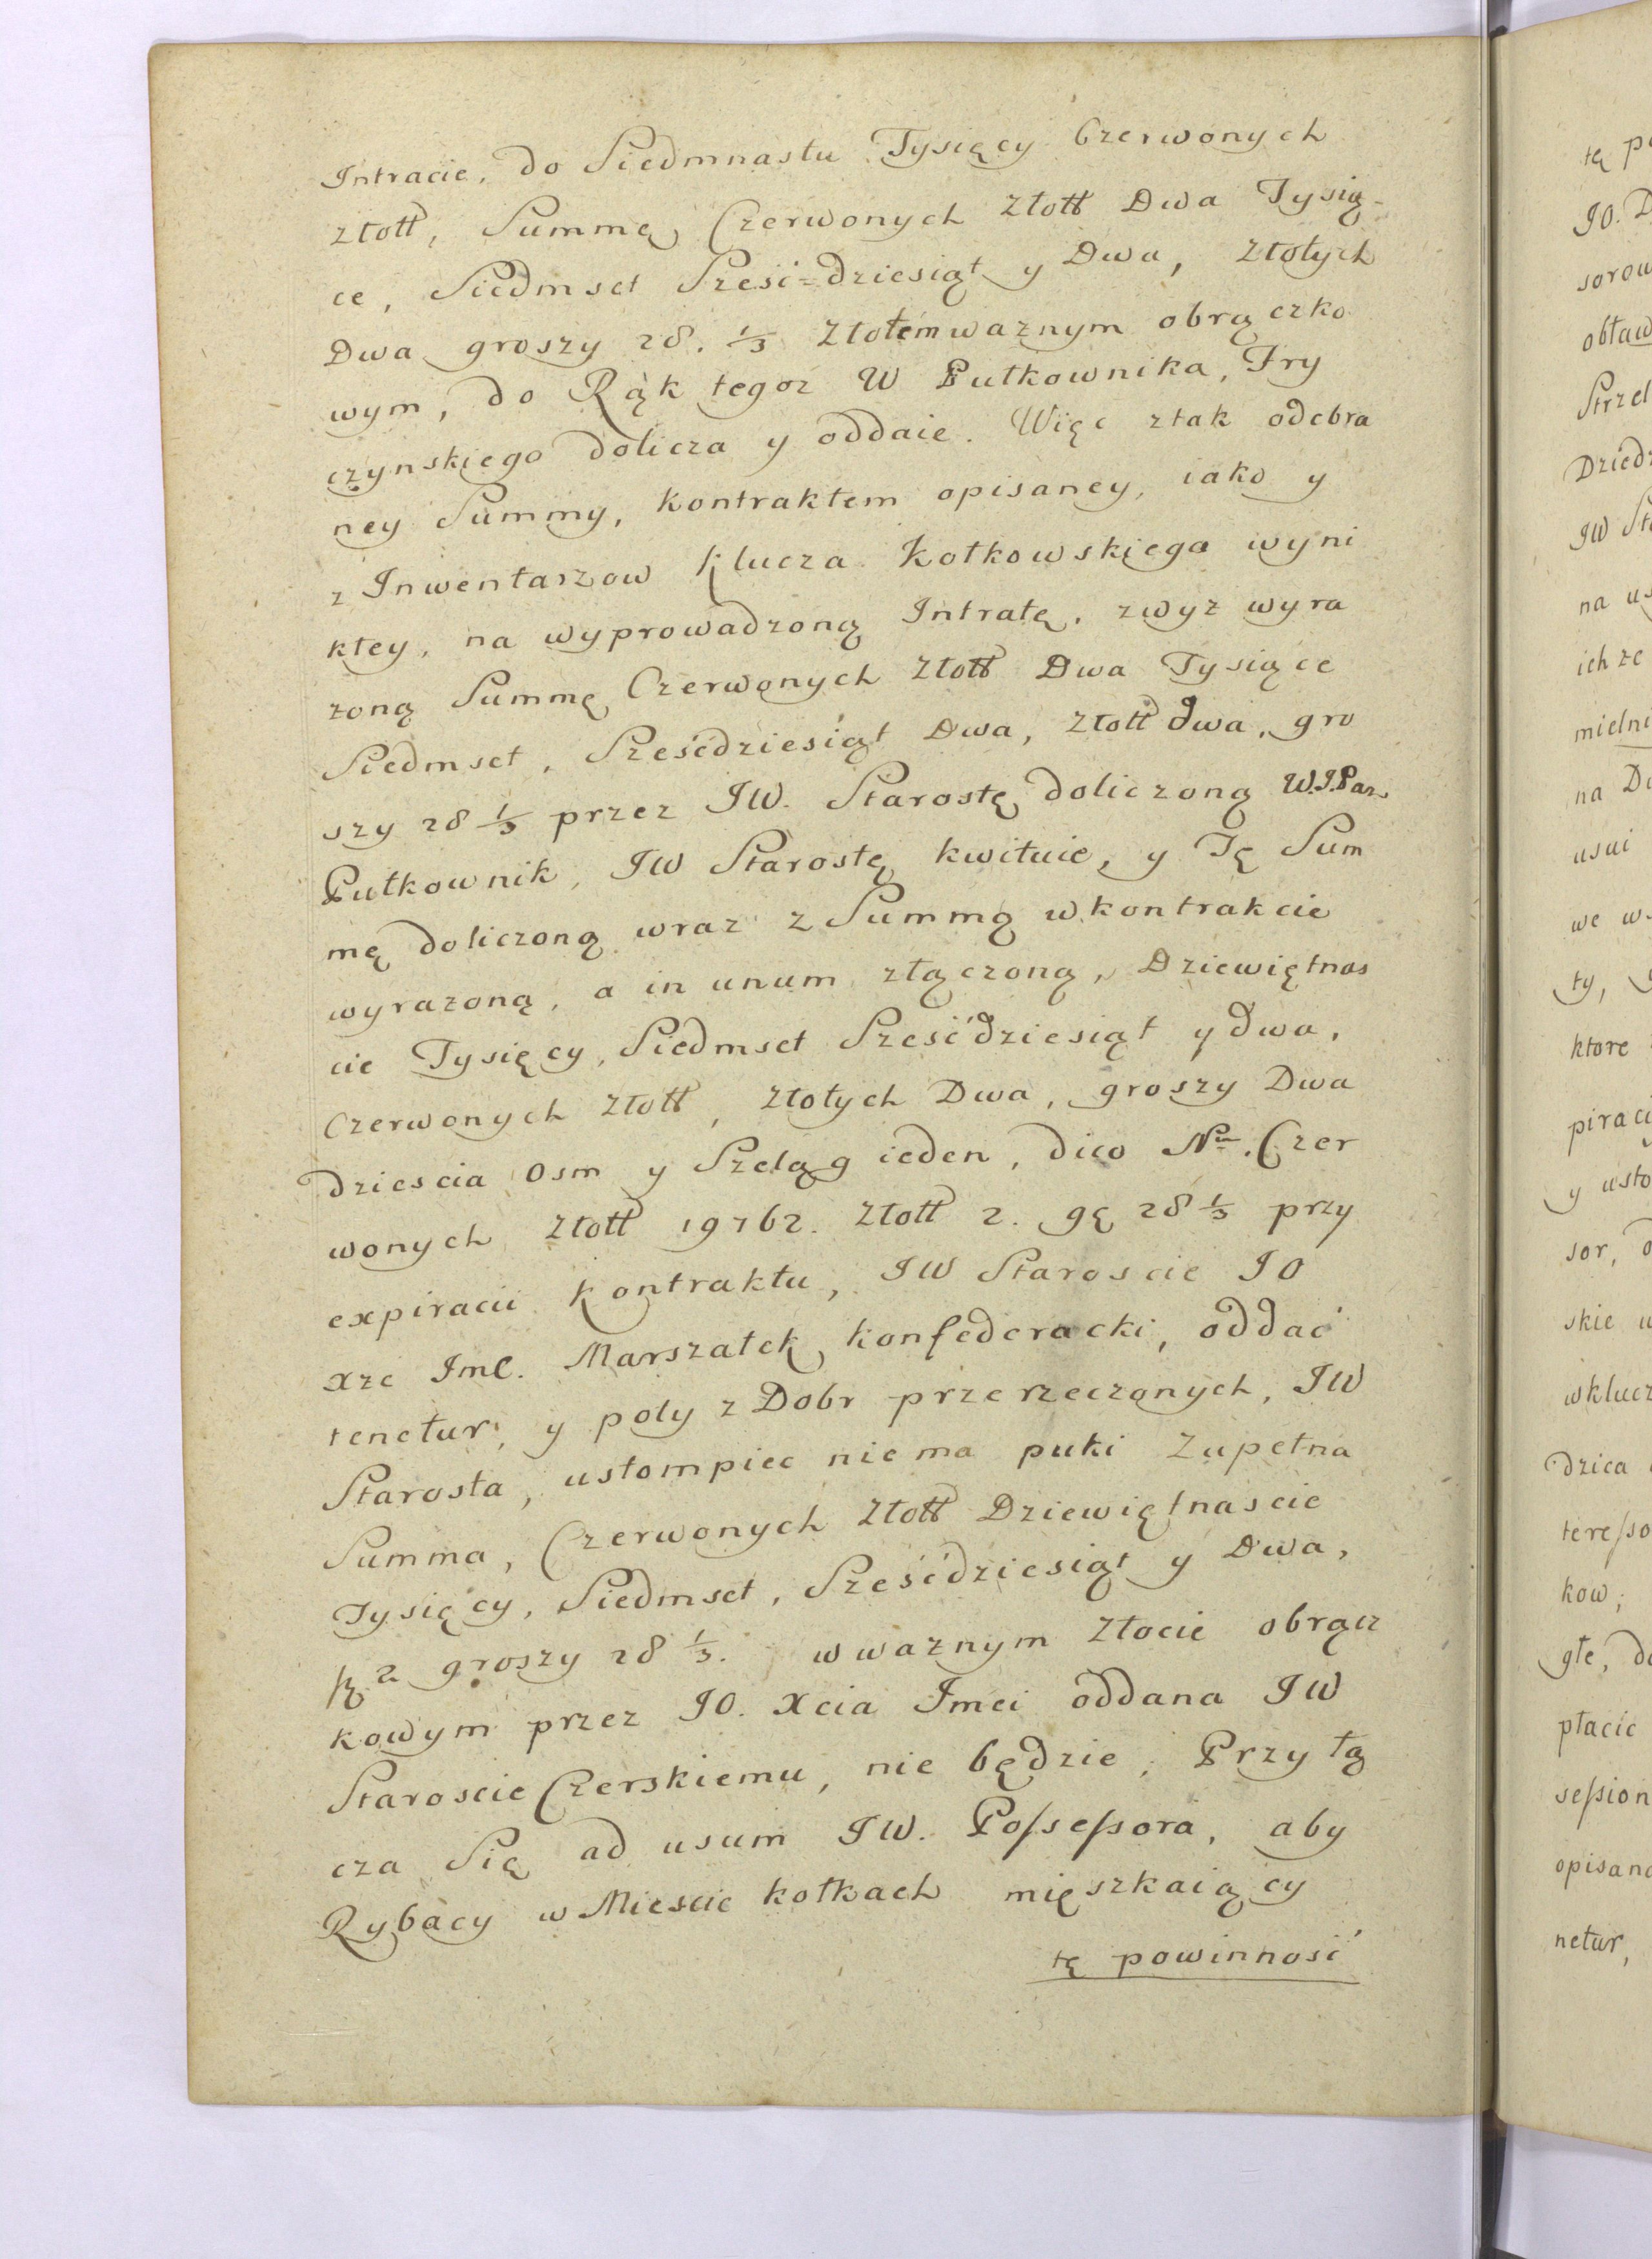 Intracie, do Siedmnastu Tysięcy Czerwonych
złott, Summę Czerwonych Złott Dwa Tysią-
ce, Siedmset Sześć=dziesiąt y Dwa, Złotych
Dwa groszy 28. 1/3 Złotem waznym obrączko
wym, do Rąk tegoz W Pułkownika, Try
czynskiego dolicza y oddaie. Więc ztak odebra
ney Summy, Kontraktem opisaney, iako y
z Inwentarzow Klucza Kotkowskiego wyni
kłey, na wyprowadzoną Intratę, zwyz wyra
zoną Summę Czerwonych Złott Dwa Tysiące
Siedmset, Sześćdziesiąt Dwa, Złott dwa, gro
szy 28 1/3 przez JW. Starostę doliczoną W.J.Pan
Pułkownik, JW Starostę kwituie, y Tę Sum
mę doliczoną wraz z Summą w kontrakcie
wyrazoną, a in unum złączoną, Dziewiętnas
cie Tysięcy, Siedmset Sześćdziesiąt y dwa,
Czerwonych Złott, Złotych Dwa, groszy Dwa
dziescia Osm y Szeląg ieden, dico Nro. Czer
wonych Złott 19762. Złott 2. gę 28 1/3 przy
expiracii Kontraktu, JW Staroscie JO
Xze Imc. Marszałek konfederacki, oddać
tenetur, y poty z Dobr przerzeczonych, JW
Starosta, ustompiec nie ma puki Zupełna
Summa, Czerwonych Złott Dziewiętnascie
Tysięcy, Siedmset, Sześćdziesiąt y Dwa,
2 groszy 28 1/3. w waznym Złocie obrącz
kowym przez JO. Xcia Imci oddana JW
Staroscie Czerskiemu, nie będzie; Przy łą
cza Się ad usum JW. Possessora, aby
Rybacy w Miescie kotkach mięszkaiący
tę powinność
tę
JO. D
sorow
obław
Strzel
Dziedz
JW
na
ich ze
mielni
na
usui
we
ty,
ktore
piraci
y usto
sor,
skie
w klucz
dzica
teresso
kow,
głe,
płacić
session
opisan
netur,